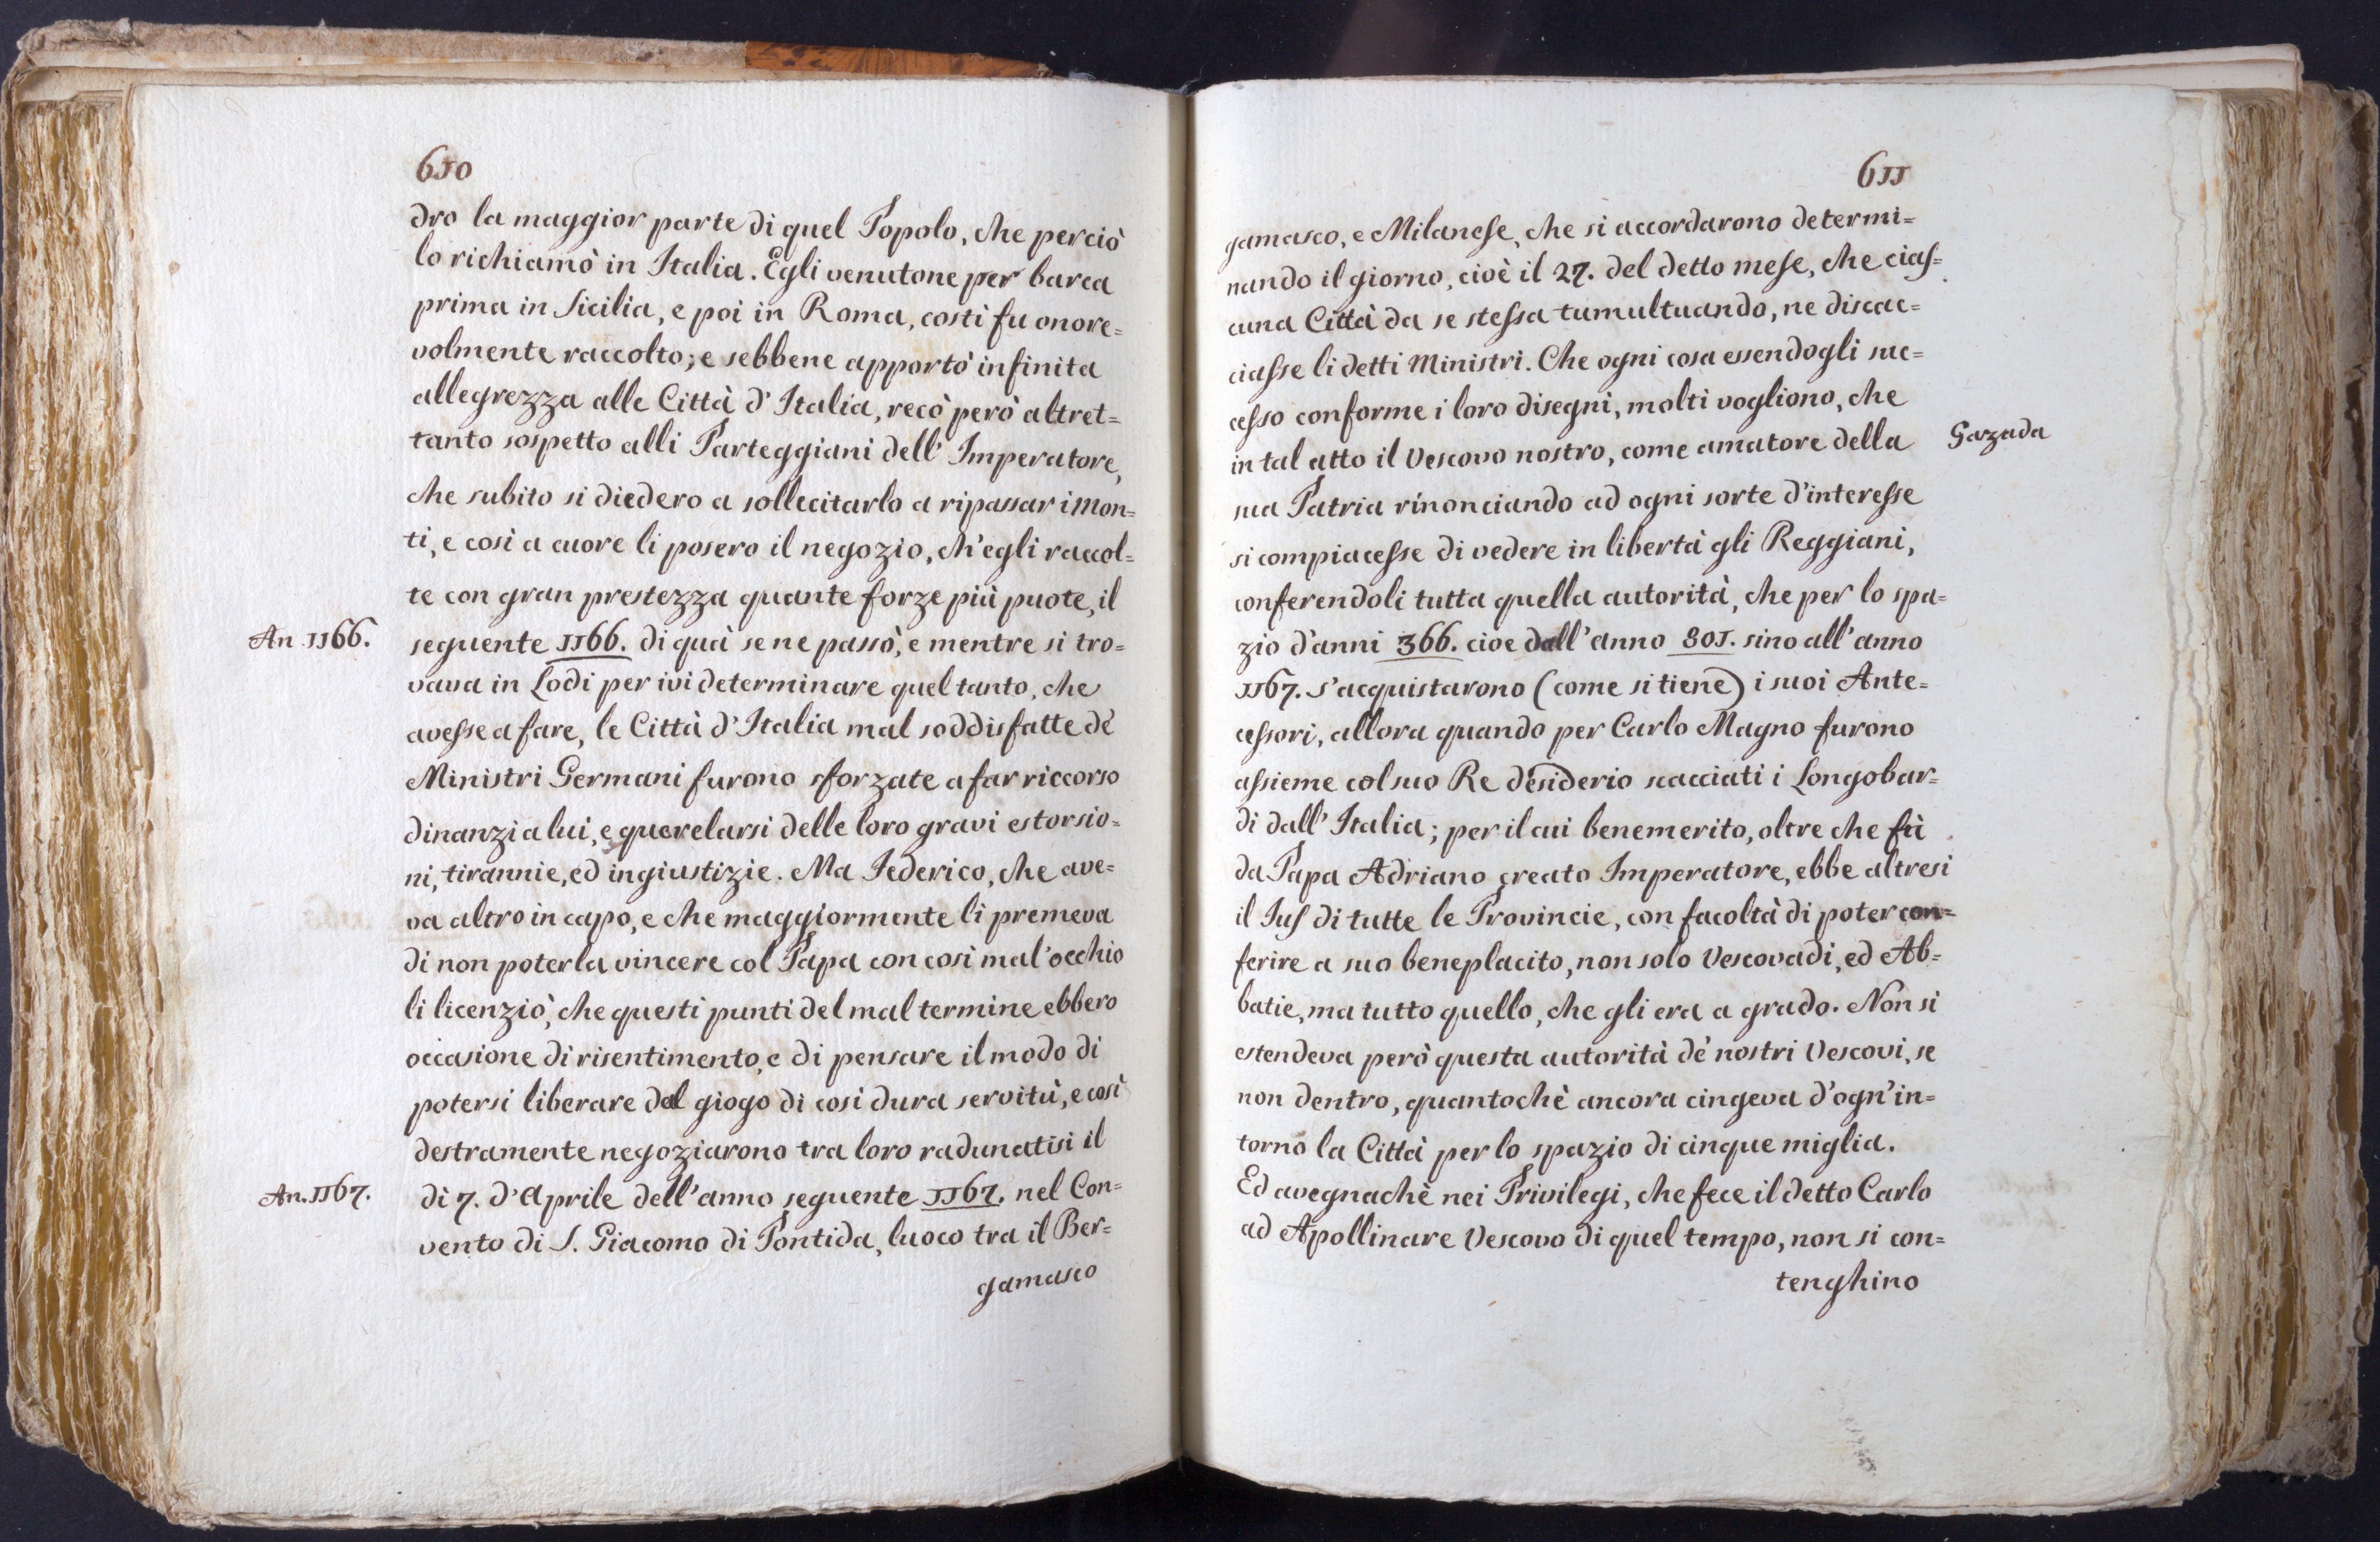 610
dro la maggior parte di quel Popolo, che perciò
lo richiamò in Italia. Egli venutone per barca
prima in Sicilia, e poi in Roma, costì fu onore=
volmente raccolto; e sebbene apportò infinita
allegrezza alle Città d'Italia, recò però altret=
tanto sospetto alli Parteggiani dell'Imperatore,
che subito si diedero a sollecitarlo a ripassar i Mon=
ti, e così a cuore li posero il negozio, ch'egli raccol=
te con gran prestezza quante forze più puote, il
An. 1166.
seguente 1166. di quà se ne passò, e mentre si tro=
vava in Lodi per ivi determinare quel tanto, che
avesse a fare, le Città d'Italia mal soddisfatte de'
Ministri Germani furono sforzate a far riccorso
dinanzi a lui, e querelarsi delle loro gravi estorsio=
ni, tirannie, ed ingiustizie. Ma Federico, che ave=
va altro in capo, e che maggiormente li premeva
di non poterla vincere col Papa con così mal'occhio
li licenziò, che questi punti del mal termine ebbero
occasione di risentimento, e di pensare il modo di
potersi liberare dal giogo di così dura servitù, e così
destramente negoziarono tra loro radunatisi il
An. 1167.
dì 7. d'Aprile dell'anno seguente 1167. nel Con=
vento di S. Giacomo di Pontida, luoco tra il Ber=
gamasco
611
gamasco, e Milanese, che si accordarono determi=
nando il giorno, cioè il 27. del detto mese, che cias=
cuna Città da se stessa tumultuando, ne discac=
ciasse li detti Ministri. Che ogni cosa essendogli suc=
cesso conforme i loro disegni, molti vogliono, che
in tal atto il Vescovo nostro, come amatore della
Gazada
sua Patria rinonciando ad ogni sorte d'interesse
si compiacesse di vedere in libertà gli Reggiani,
conferendoli tutta quella autorità, che per lo spa=
zio d'anni 366. cioe dall'anno 801. sino all'anno
1167. s'acquistarono (come si tiene) i suoi Ante=
cessori, allora quando per Carlo Magno furono
assieme col suo Re desiderio scacciati i Longobar=
di dall'Italia; per il cui benemerito, oltre che fù
da Papa Adriano creato Imperatore, ebbe altresi
il Jus di tutte le Provincie, con facoltà di poter con=
ferire a suo beneplacito, non solo Vescovadi, ed Ab=
batie, ma tutto quello, che gli era a grado. Non si
estendeva però questa autorità de' nostri Vescovi, se
non dentro, quantochè ancora cingeva d'ogn'in=
torno la Città per lo spazio di cinque miglia.
Ed avegnachè nei Privilegi, che fece il detto Carlo
ad Apollinare Vescovo di quel tempo, non si con=
tenghino